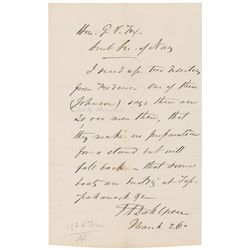 Hon. G. V. Fox
Asst Sec. of Nav
I send up two deserters
from Frederic one of them
(Johnson) says there are
20.000 men there, that
they make no preparations
for a stand but will
fall back — that some
boats are building at Tap-
pahannock &c
J A Dahlgren
March 26